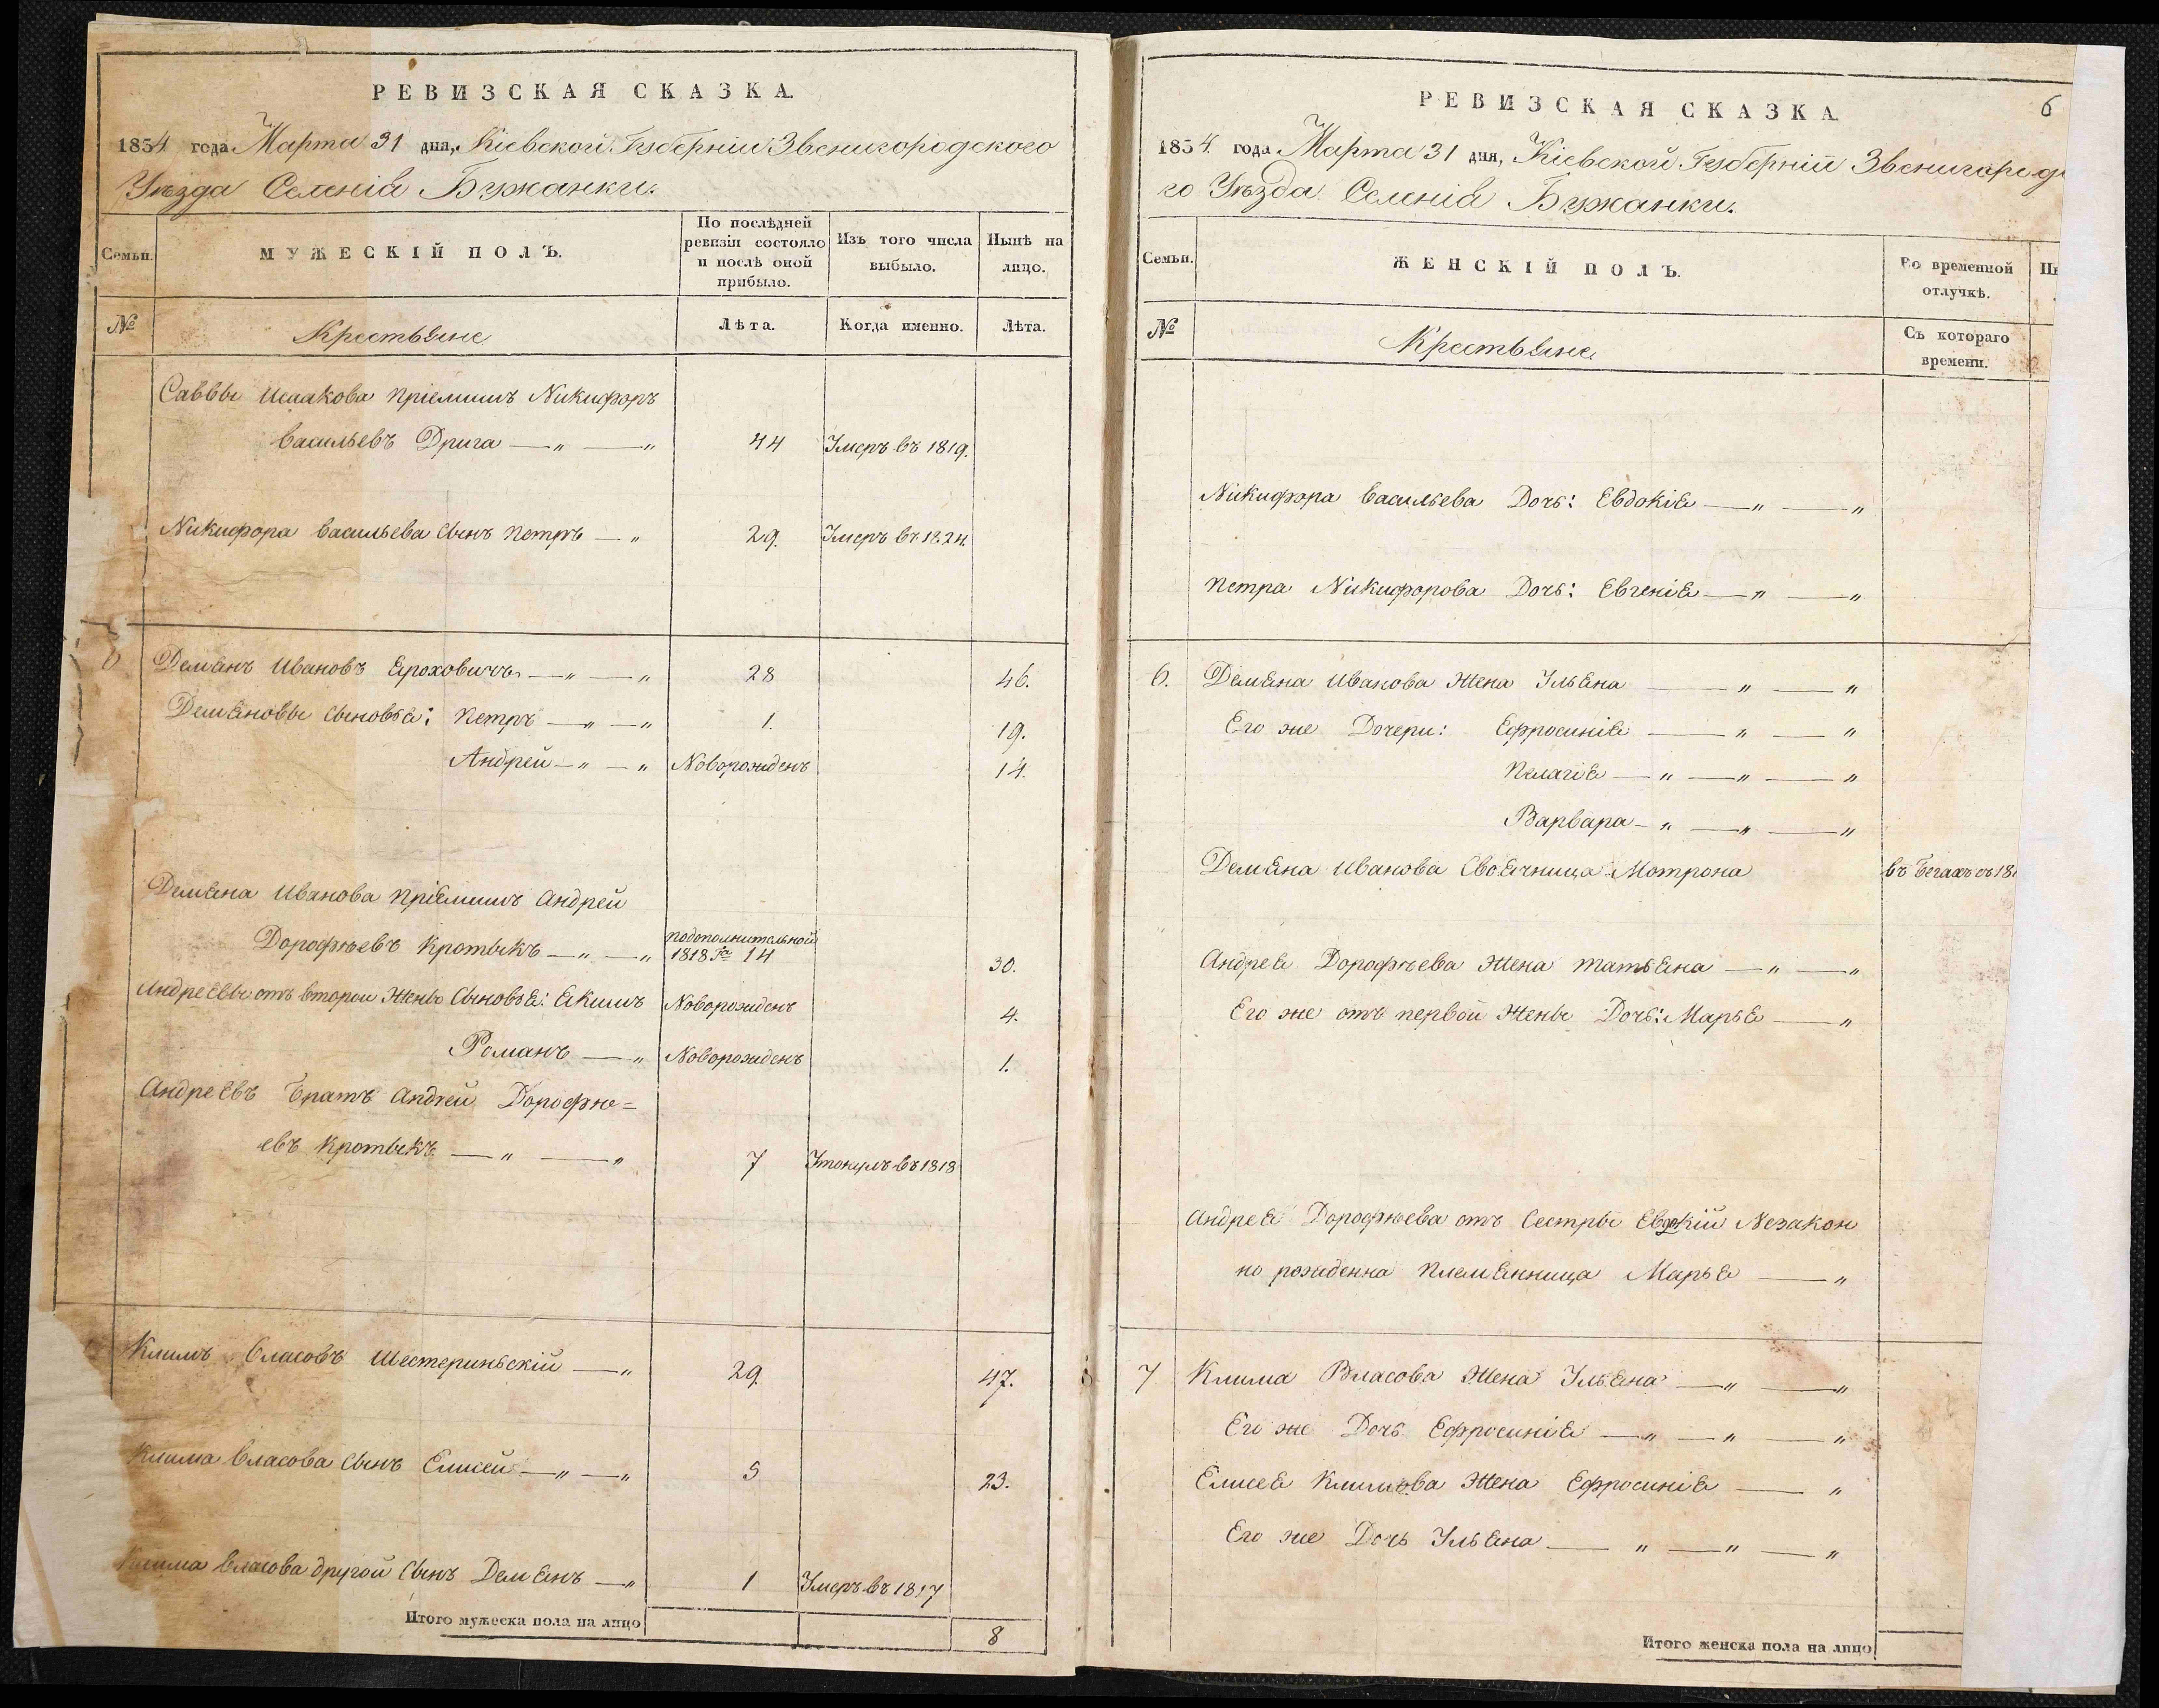 РЕВИЗСКАЯ СКАЗКА.
1834 года Марта 31 дня, Кіевской Губерніи Звенигородского
Уѣзда Селенія Бужанки.
Семьи. МУЖЕСКІЙ ПОЛЪ. По послѣдней ревизіи состояло и послѣ оной прибыло. Изъ того числа выбыло. Нынѣ на лицо.
№ Крестьяне Лѣта. Когда именно. Лѣта.
Саввы Исаакова пріемышъ Никифоръ
Васильевъ Дрига — „ — „ 44 Умеръ въ 1819.
Никифора Васильева сынъ Петръ — „ 29. Умеръ въ 1824.
6 Демянъ Ивановъ Яроховичъ — „ — „ 28 46.
Демяновы сыновья: Петръ — „ — „ 1. 19.
Андрей — „ — „ Новорожденъ 14.
Демяна Иванова пріемышъ Андрей
Дорофѣевъ Кротыкъ — „ — „ подополнительной 1818 Га 14 30.
Андреевы отъ второй жены сыновья: Якимъ Новорожденъ 4.
Романъ — „ Новорожденъ 1.
Андреевъ братъ Андрей Дорофѣ=
евъ Кротыкъ — „ — „ 7 Утонулъ въ 1818
Климъ Власовъ Шестериньскій — „ 29. 47.
Клима Власова сынъ Елисей — „ — „ 5 23.
Клима Власова другой сынъ Демянъ — „ 1 Умеръ въ 1817
Итого мужеска пола на лицо 8
6
РЕВИЗСКАЯ СКАЗКА.
1834 года Марта 31 дня, Кіевской Губерніи Звенигород
го Уѣзда Селенія Бужанки.
Семьи. ЖЕНСКІЙ ПОЛЪ. Во временной отлучкѣ.
№ Крестьяне Съ котораго времени.
Никифора Васильева дочь: Евдокія — „ — „
Петра Никифорова дочь: Евгенія — „ — „
6. Демяна Иванова жена Ульяна — „ — „
Его же дочери: Ефросинія — „ — „
Пелагія — „ — „ — „
Варвара — „ — „ — „
Демяна Иванова своячница Мотрона въ бегахъ съ 18
Андрея Дорофѣева жена Татьяна — „ — „
Его же отъ первой жены дочь: Марья — „
Андрея Дорофѣева отъ сестры Евдокіи незакон
но рожденна племянница Марья — „
7 Клима Власова жена Ульяна — „ — „
Его же дочь Ефросинія — „ — „ — „
Елисея Климова жена Ефросинія — „
Его же дочь Ульяна — „ — „ — „
Итого женска пола на лицо